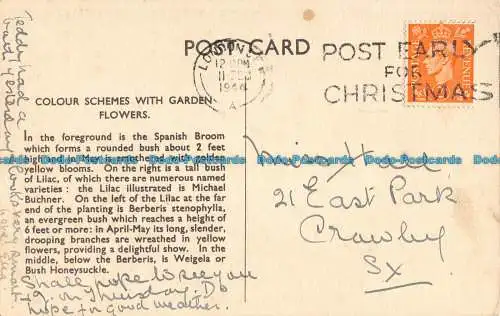 POST CARD
LONDON
12 15 PM
11 DEC
1944
A
POST EARLY
FOR
CHRISTMAS
COLOUR SCHEMES WITH GARDEN
FLOWERS.
In the foreground is the Spanish Broom
which forms a rounded bush about 2 feet
high and in May is smothered with golden
yellow blooms. On the right is a tall bush
of Lilac, of which there are numerous named
varieties : the Lilac illustrated is Michael
Buchner. On the left of the Lilac at the far
end of the planting is Berberis stenophylla,
an evergreen bush which reaches a height of
6 feet or more: in April-May its long, slender,
drooping branches are wreathed in yellow
flowers, providing a delightful show. In the
middle, below the Berberis, is Weigela or
Bush Honeysuckle.
Shall hope to see you
on Thursday. Do
hope for good weather.
Teddy had a
bath yesterday
Looks very
Miss Hall
21 East Park
Crawley
Sx
Dodo-Postcards Dodo-Postcards Dodo-Postcards Dodo-Postcards